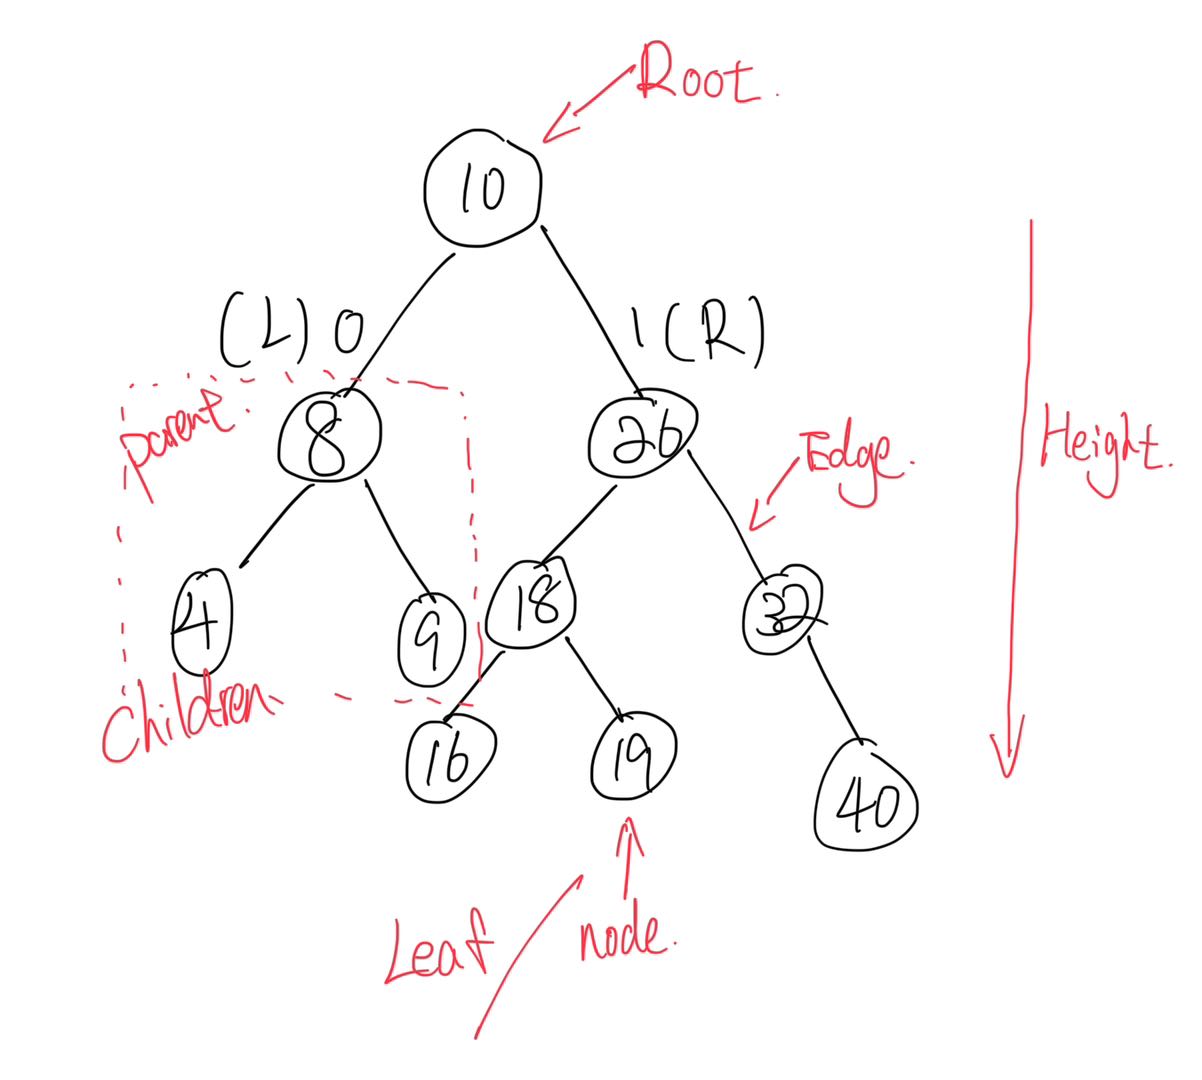 Root.
10
(L) 0
1 (R)
parent.
8
26
Edge.
Height.
4
9
18
32
Children
16
19
40
Leaf / node.